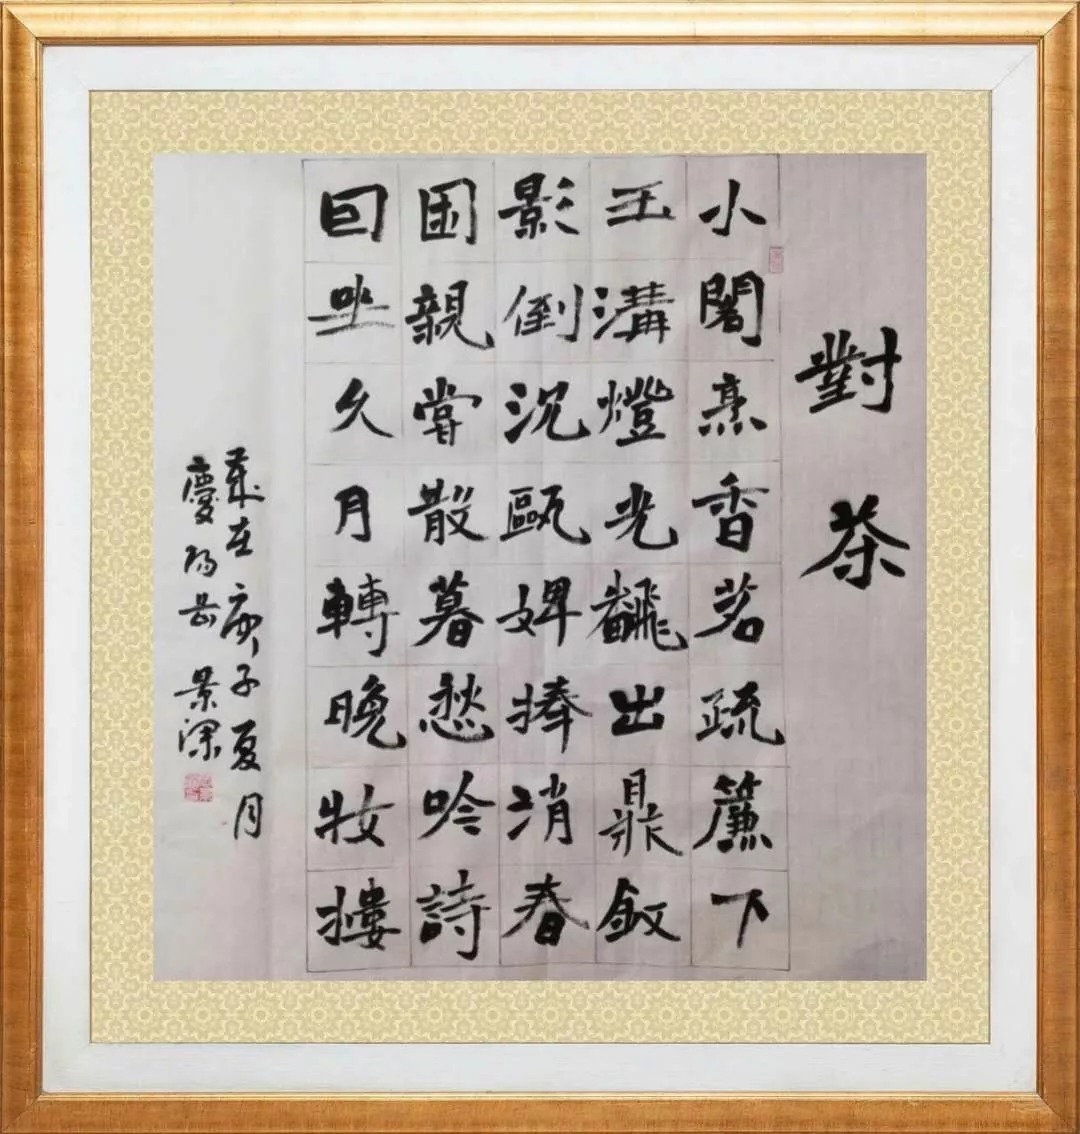 對茶
小閣烹香茗疏簾下
玉溝燈光飜出鼎釵
影倒沉甌婢捧消春
困親嘗散暮愁吟詩
囙坐久月轉晚妝摟
歲在庚子夏月
慶陽岳景深